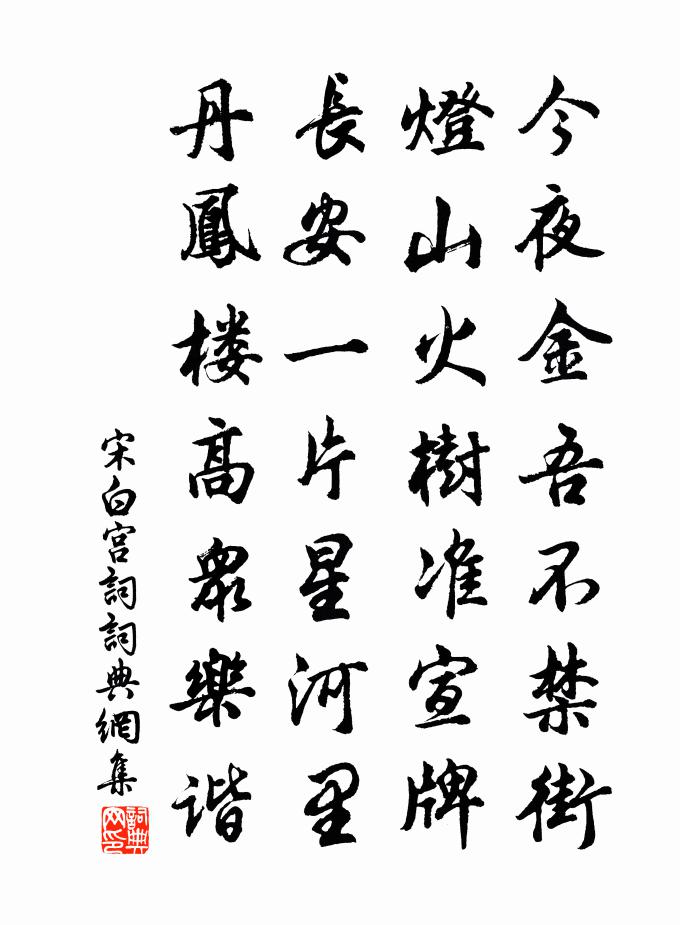 今夜金吾不禁街
燈山火樹准宣牌
長安一片星河里
丹鳳楼高衆樂谐
宋白宫詞詞典網集
詞典
网印